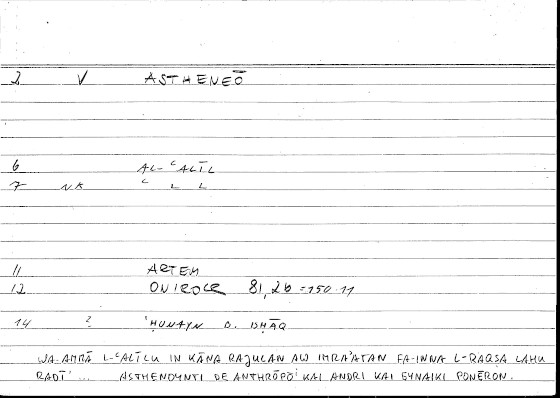 2 V ASTHENEŌ
6 AL-ʿALĪL
7 NK ʿ L L
11 ARTEM
12 ONIROCR 81,26 = 150.11
14 ? ḤUNAYN B. ISḤĀQ
WA-AMMĀ L-ʿALĪLU IN KĀNA RAJULAN AW IMRA'ATAN FA-INNA L-RAQṢA LAHU
RADĪ' ... ASTHENOYNTI DE ANTHRŌPŌ KAI ANDRI KAI GYNAIKI PONĒRON.